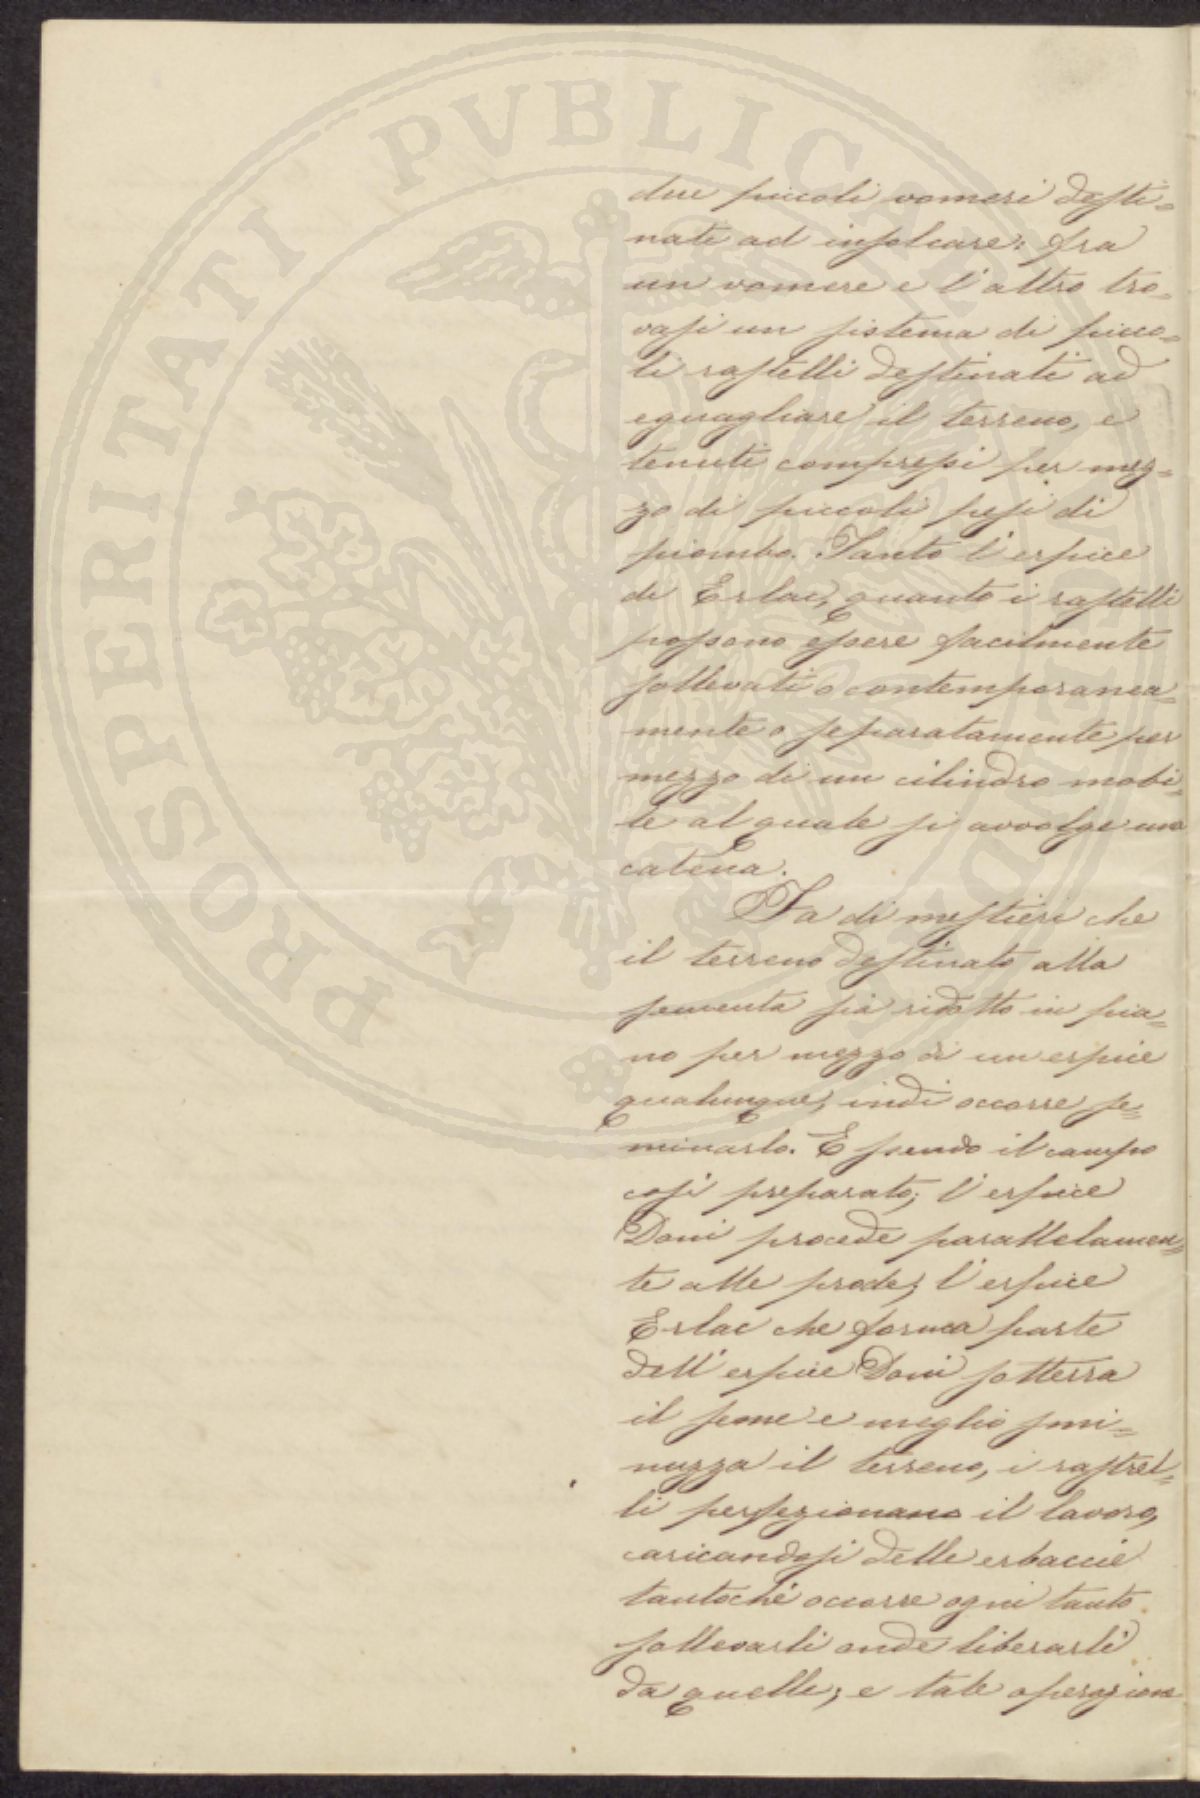 due piccoli vomeri desti=
nati ad insolcare: fra
un vomere e l'altro tro=
vasi un sistema di picco=
li rastelli destinati ad
eguagliare il terreno, e
tenuti compressi per mez=
zo di piccoli pesi di
piombo. Tanto l'erpice
di Erlac, quanto i rastelli
possono essere facilmente
sollevati o contemporanea=
mente o separatamente per
mezzo di un cilindro mobi=
le al quale si avvolge una
catena.
Fa di mestieri che
il terreno destinato alla
sementa sia ridotto in pia=
no per mezzo di un erpice
qualunque, indi occorre se=
minarlo. Essendo il campo
così preparato; l'erpice
Doni procede parallelamen=
te alle prode; l'erpice
Erlac che forma parte
dell'erpice Doni sotterra
il seme e meglio smi=
nuzza il terreno, i rastrel=
li perfezionano il lavoro,
caricandosi delle erbaccie
tantoché occorre ogni tanto
sollevarli onde liberarli
da quelle; e tale operazione
PROSPERITATI PVBLICAE